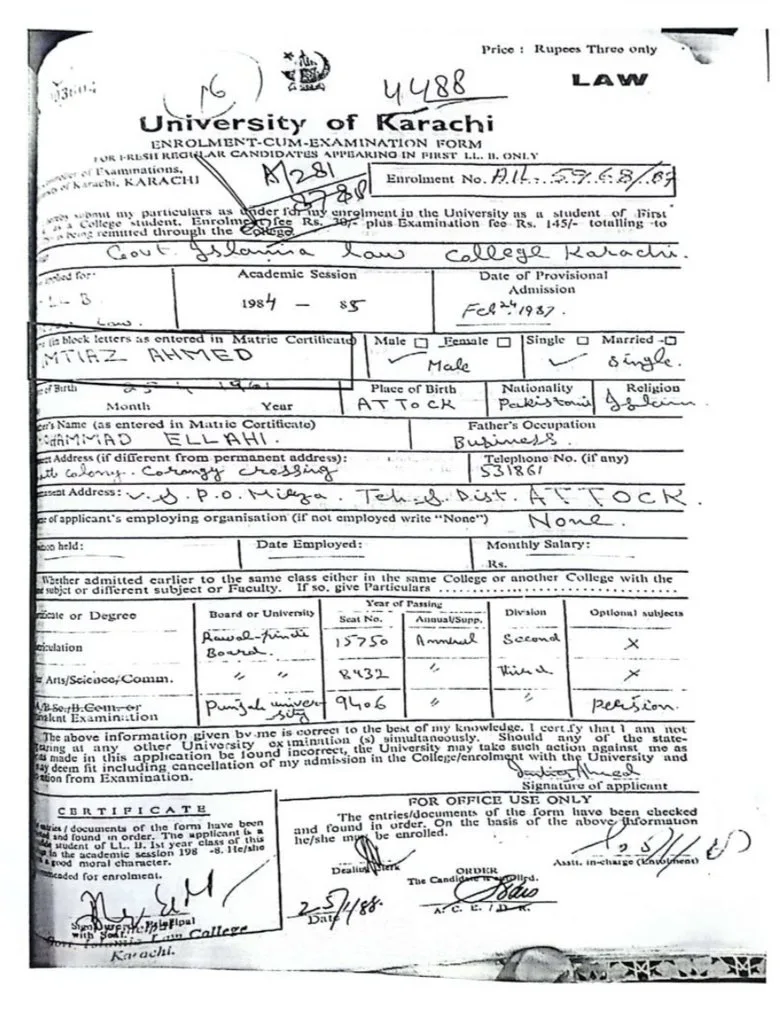 Price : Rupees Three only
LAW
(16)
4488
University of Karachi
ENROLMENT-CUM-EXAMINATION FORM
FOR FRESH REGULAR CANDIDATES APPEARING IN FIRST LL. B. ONLY
of Examinations,
of Karachi, KARACHI
A/281
3788
Enrolment No. A.IL-5968/87
submit my particulars as under for my enrolment in the University as a student of First
as a College student. Enrolment fee Rs. plus Examination fee Rs. 145/- totalling to
being remitted through the College
Govt. Islamia Law College Karachi.
for:
Academic Session
Date of Provisional
Admission
LL B
1984 - 85
Feb 24 1987.
Law.
(in block letters as entered in Matric Certificate)
Male Female
Single Married
MTIAZ AHMED
Male
Single.
of Birth
Place of Birth
Nationality
Religion
Month Year
ATTOCK
Pakistani
Islam
Name (as entered in Matric Certificate)
Father's Occupation
AMMAD ELLAHI.
Business.
Address (if different from permanent address):
Telephone No. (if any)
Colony. Corangy Crossing
531861
Address: V. & P.O. Mirza. Teh. & Dist. ATTOCK.
of applicant's employing organisation (if not employed write "None") None.
held:
Date Employed:
Monthly Salary:
Rs.
Whether admitted earlier to the same class either in the same College or another College with the
subjct or different subject or Faculty. If so, give Particulars
or Degree
Board or University
Year of Passing
Division
Optional subjects
Seat No.
Annual/Supp.
Rawal-pindi
Board.
15750
Annual
Second
X
Arts/Science/Comm.
" "
8432
"
Third
X
B.Sc./B.Com. or
Examination
Punjab univer
sity
9406
"
"
persion.
The above information given by me is correct to the best of my knowledge. I certify that I am not
at any other University examination (s) simultaneously. Should any of the state-
made in this application be found incorrect, the University may take such action against me as
deem fit including cancellation of my admission in the College/enrolment with the University and
from Examination.
Signature of applicant
CERTIFICATE
entries / documents of the form have been
and found in order. The applicant is a
student of LL. B. 1st year class of this
in the academic session 198 -8. He/she
good moral character.
for enrolment.
Principal
with Seal.
Govt. Islamia Law College
Karachi.
FOR OFFICE USE ONLY
The entries/documents of the form have been checked
and found in order. On the basis of the above information
he/she may be enrolled.
Dealing Clerk
ORDER
The Candidate is enrolled.
Asstt. in-charge (Enrolment)
25/1/88.
Date
A. C. E. / D. R.